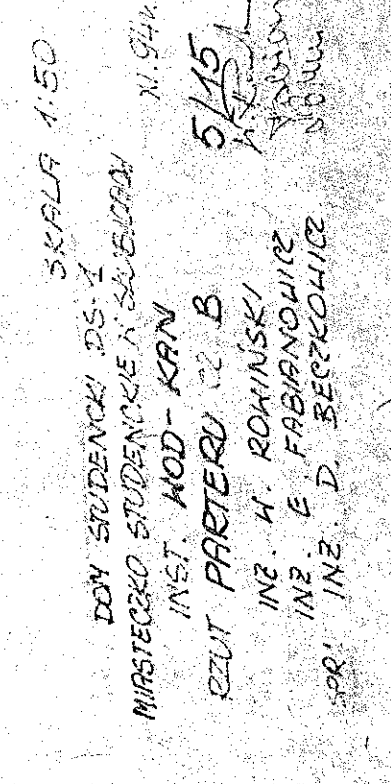 SKALA 1:50
DOM STUDENCKI DS-1
MIASTECZKO STUDENCKIE W SŁUBICACH
INST. WOD-KAN XI.94r.
RZUT PARTERU cz B 5/15
INŻ. W. ROWIŃSKI
INŻ. E. FABIANOWICZ
SPR: INŻ. D. BECZKOWICZ